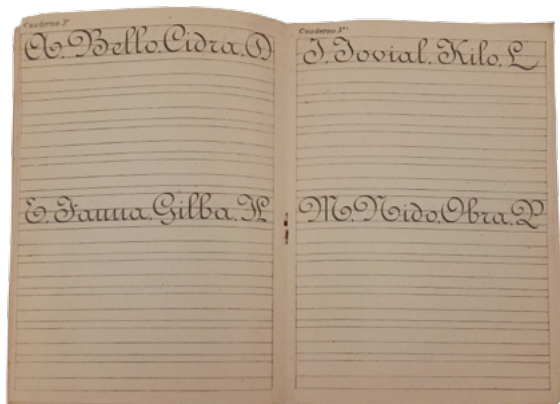 Cuaderno 3º
A. Bello. Cidra. D
E. Fauna. Gilba. H
Cuaderno 3º
I. Jovial. Kilo. L
M. Nido. Obra. P